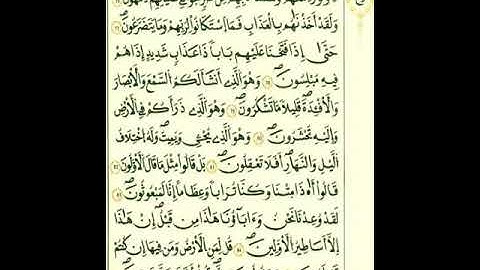 وَلَقَدْ أَخَذْنَاهُم بِالْعَذَابِ فَمَا اسْتَكَانُوا لِرَبِّهِمْ وَمَا يَتَضَرَّعُونَ ٧٦
حَتَّىٰ إِذَا فَتَحْنَا عَلَيْهِم بَابًا ذَا عَذَابٍ شَدِيدٍ إِذَا هُمْ
فِيهِ مُبْلِسُونَ ٧٧ وَهُوَ الَّذِي أَنشَأَ لَكُمُ السَّمْعَ وَالْأَبْصَارَ
وَالْأَفْئِدَةَ قَلِيلًا مَّا تَشْكُرُونَ ٧٨ وَهُوَ الَّذِي ذَرَأَكُمْ فِي الْأَرْضِ
وَإِلَيْهِ تُحْشَرُونَ ٧٩ وَهُوَ الَّذِي يُحْيِي وَيُمِيتُ وَلَهُ اخْتِلَافُ
الَّيْلِ وَالنَّهَارِ أَفَلَا تَعْقِلُونَ ٨٠ بَلْ قَالُوا مِثْلَ مَا قَالَ الْأَوَّلُونَ ٨١
قَالُوا أَإِذَا مِتْنَا وَكُنَّا تُرَابًا وَعِظَامًا أَإِنَّا لَمَبْعُوثُونَ ٨٢
لَقَدْ وُعِدْنَا نَحْنُ وَآبَاؤُنَا هَٰذَا مِن قَبْلُ إِنْ هَٰذَا
إِلَّا أَسَاطِيرُ الْأَوَّلِينَ ٨٣ قُل لِّمَنِ الْأَرْضُ وَمَن فِيهَا إِن كُنتُمْ